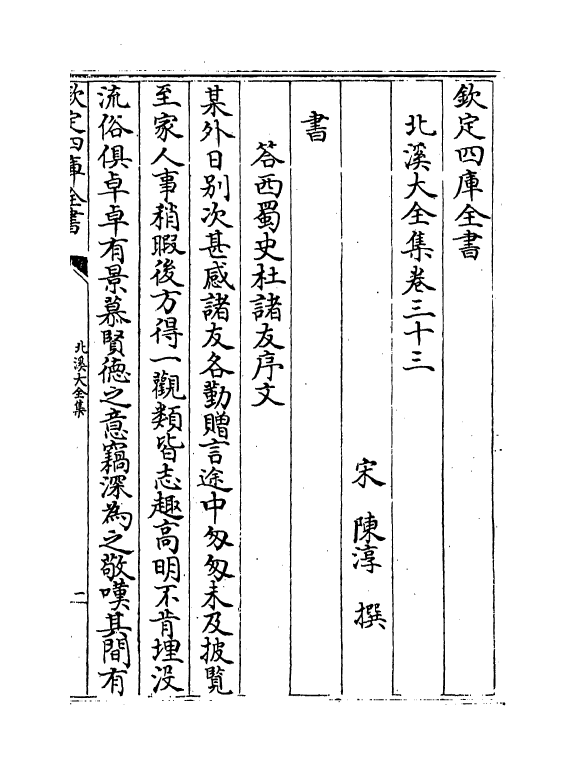 欽定四庫全書
北溪大全集卷三十三
宋 陳淳 撰
書
荅西蜀史杜諸友序文
某外日别次甚感諸友各勤贈言途中匆匆未及披覽
至家人事稍暇後方得一觀類皆志趣高明不肯埋没
流俗俱卓卓有景慕賢徳之意竊深為之敬嘆其間有
欽定四庫全書
北溪大全集